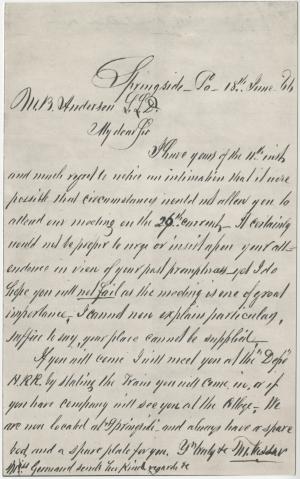 Springside - Po - 18th June /64
M. B. Anderson L.L.D.
My dear Sir
I have yours of the 11th inst
and much regret to notice an intimation that it were
possible that circumstances would not allow you to
attend our meeting on the 28th current - It certainly
would not be proper to urge or insist upon your att-
endance in view of your past promptness - yet I do
hope you will not fail as the meeting is one of great
importance, I cannot now explain particulars,
suffice to say, your place cannot be supplied. -
If you will come I will meet you at the "Depo"
H.R.R. by stating the Train you will come in, or if
you have company will see you at the College. - We
are now located at Springside - and always have a spare
bed, and a spare plate for you. Yrs truly &c M. Vassar
Miss Germand sends her kind regards &c